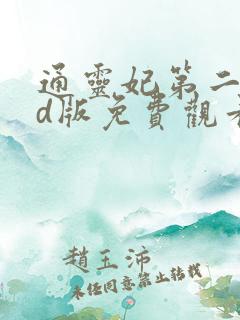 通靈妃第二
d版免費觀看
趙玉沛
未經同意禁止轉載